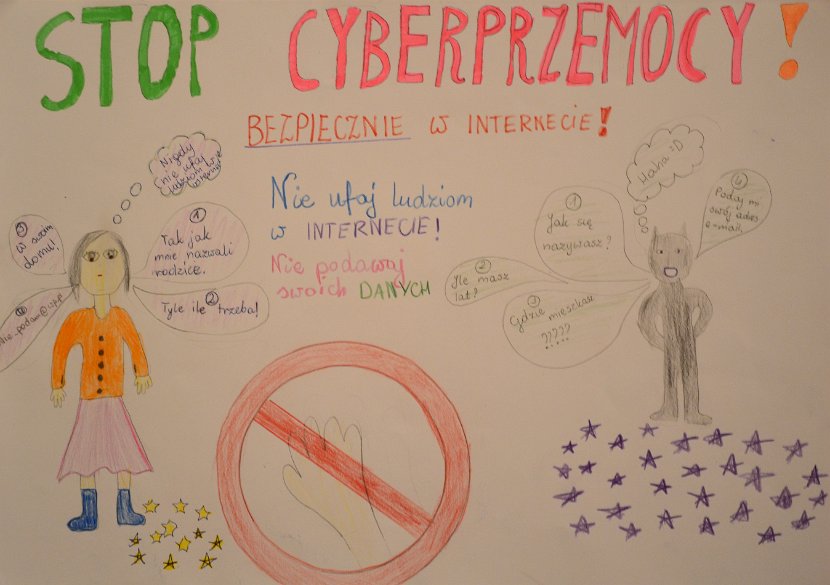 STOP CYBERPRZEMOCY!
BEZPIECZNIE W INTERNECIE!
Nie ufaj ludziom
w INTERNECIE!
Nie podawaj
swoich DANYCH
Nigdy
nie ufaj
ludziom w
1
Tak jak
mnie nazwali
rodzice.
2
Tyle ile trzeba!
3
W swoim
domu!
4
Haha :D
1
Jak się
nazywasz?
2
Ile masz
lat?
3
Gdzie mieszkasz
?????
4
Podaj mi
swój adres
e-mail.